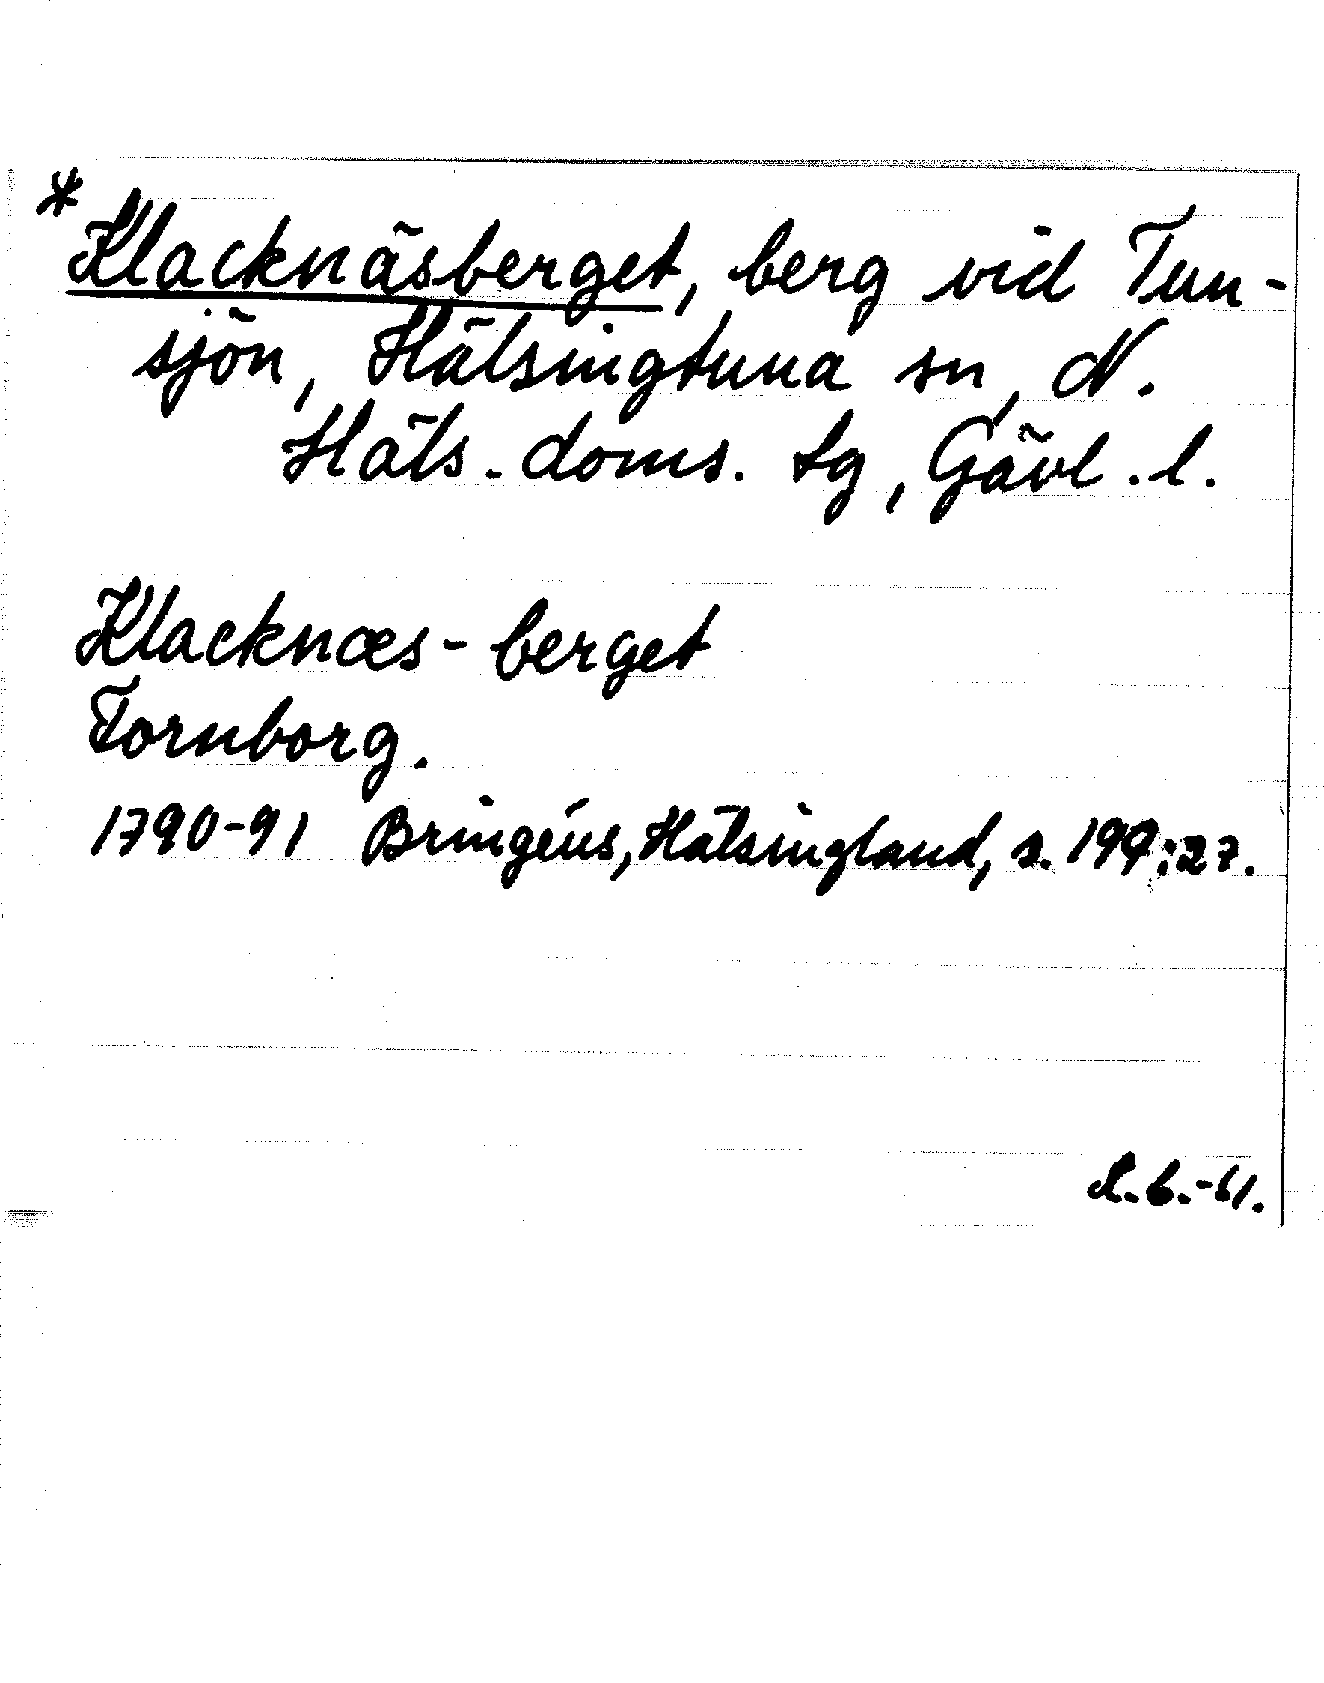 *Klacknäsberget, berg vid Tun-
sjön, Hälsingtuna sn, N.
Häls. doms. tg, Gävl. l.
Klacknæs-berget
Fornborg.
1790-91 Bringéus, Hälsingland, s. 199:27.